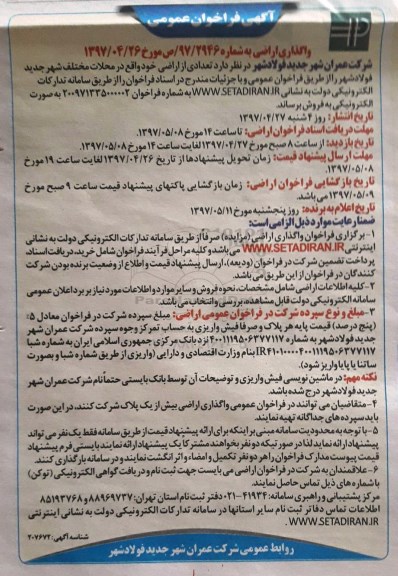 آگهی فراخوان عمومی
واگذاری اراضی به شماره ۹۷/۲۹۴۶/ص مورخ ۱۳۹۷/۰۴/۲۶
شرکت عمران شهر جدید فولادشهر در نظر دارد تعدادی از اراضی خود واقع در محلات مختلف شهر جدید
فولادشهر را از طریق فراخوان عمومی و با جزئیات مندرج در اسناد فراخوان را از طریق سامانه تدارکات
الکترونیکی دولت به نشانی WWW.SETADIRAN.IR به شماره فراخوان ۲۰۰۹۷۱۳۳۵۰۰۰۰۰۲ به صورت
الکترونیکی به فروش برساند.
تاریخ انتشار: روز ۴شنبه ۱۳۹۷/۰۴/۲۷
مهلت دریافت اسناد فراخوان اراضی: تا ساعت ۱۴ مورخ ۱۳۹۷/۰۵/۰۸.
تاریخ بازدید: از ساعت ۸ صبح مورخ ۱۳۹۷/۰۴/۲۷ لغایت ساعت ۱۴ مورخ ۱۳۹۷/۰۵/۰۸.
مهلت ارسال پیشنهاد قیمت: زمان تحویل پیشنهادها از تاریخ ۱۳۹۷/۰۴/۲۶ لغایت ساعت ۱۹ مورخ
۱۳۹۷/۰۵/۰۸.
تاریخ بازگشایی فراخوان اراضی: زمان بازگشایی پاکتهای پیشنهاد قیمت ساعت ۹ صبح مورخ
۱۳۹۷/۰۵/۰۹ می باشد.
تاریخ اعلام به برنده: روز پنجشنبه مورخ ۱۳۹۷/۰۵/۱۱
ضمنا رعایت موارد ذیل الزامی است:
۱- برگزاری فراخوان واگذاری اراضی (مزایده) صرفاً از طریق سامانه تدارکات الکترونیکی دولت به نشانی
اینترنتی WWW.SETADIRAN.IR می باشد و کلیه مراحل فرآیند فراخوان شامل خرید، دریافت اسناد،
پرداخت تضمین شرکت در فراخوان (ودیعه)، ارسال پیشنهاد قیمت و اطلاع از وضعیت برنده بودن شرکت
کنندگان در فراخوان از این طریق می باشد.
۲- کلیه اطلاعات اراضی شامل مشخصات، نحوه فروش و سایر موارد و اطلاعات مورد نیاز بر برد اعلان عمومی
سامانه الکترونیکی دولت قابل مشاهده، بررسی و انتخاب می باشد.
۳- مبلغ و نوع سپرده شرکت در فراخوان عمومی اراضی: مبلغ سپرده شرکت در فراخوان معادل ۵٪
(پنج درصد) قیمت پایه هر پلاک و صرفا فیش واریزی به حساب تمرکز وجوه سپرده شرکت عمران شهر
جدید فولادشهر به شماره ۴۰۰۱۱۱۹۵۰۶۳۷۷۱۱۷ نزد بانک مرکزی جمهوری اسلامی ایران به شماره شبا
بنام وزارت اقتصادی و دارایی (واریزی از طریق شماره شبا و بصورت
ساتنا یا پایا واریز شود).
نکته مهم: در ماشین نویسی فیش واریزی و توضیحات آن توسط بانک بایستی حتماً نام شرکت عمران شهر
جدید فولادشهر درج شده باشد.
۴- متقاضیان می توانند در فراخوان عمومی واگذاری اراضی بیش از یک پلاک شرکت کنند، در این صورت
باید سپرده های جداگانه تهیه نمایند.
۵- با توجه به محدودیت سامانه مبنی بر اینکه برای ارائه پیشنهاد قیمت از طریق سامانه فقط یک نفر می تواند
پیشنهاد ارائه نماید لذا در صورتیکه دو نفر بخواهند مشترکا یک پیشنهاد ارائه نمایند بایستی فرم پیشنهاد
قیمت پیوست مدارک فراخوان را هر دو نفر تکمیل و امضاء و اثر انگشت نمایند و در سامانه بارگذاری کنند.
۶- علاقمندان به شرکت در فراخوان اراضی می بایست جهت ثبت نام و دریافت گواهی الکترونیکی (توکن)
با شماره های ذیل تماس حاصل نمایند.
مرکز پشتیبانی و راهبری سامانه: ۴۱۹۳۴-۰۲۱ دفتر ثبت نام استان تهران: ۸۸۹۶۹۷۳۷ و ۸۵۱۹۳۷۶۸
اطلاعات تماس دفاتر ثبت نام سایر استانها در سامانه تدارکات الکترونیکی دولت به نشانی اینترنتی
WWW.SETADIRAN.IR .
شناسه آگهی: ۲۰۷۶۷۲
روابط عمومی شرکت عمران شهر جدید فولادشهر